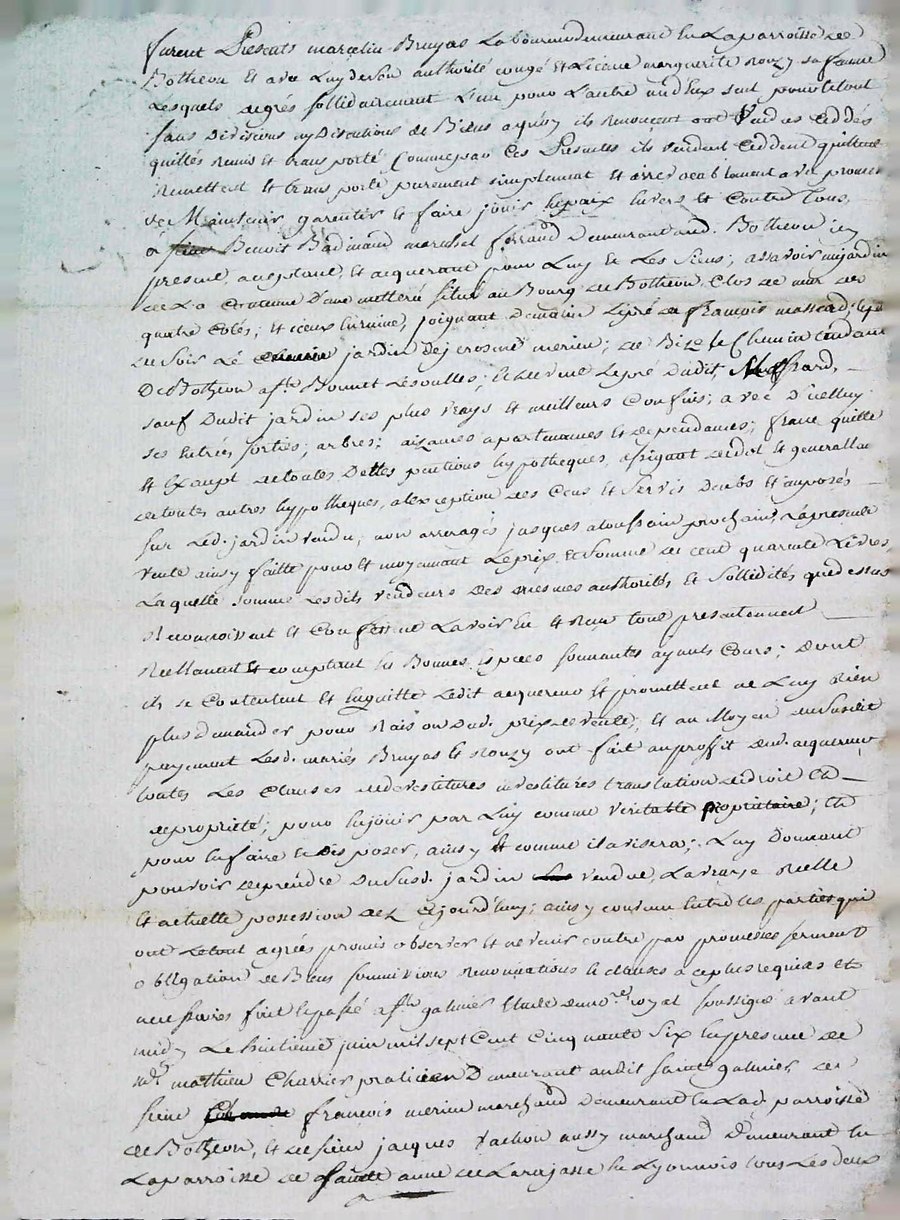 furent Presents marcelin Bruyas Laboureur demeurant En La parroisse de
Botheon Et avec Luy de son authorité congé Et Licence marguerite Rouzy sa femme
Lesquels degrés sollidairement L'un pour L'autre un d'Eux seul pour le tout
sans Divisions ny Discutions de Biens a quoy ils Renoncent ont Vendus ceddés
quittés Remis Et transporté Comme par Ces Presentes ils vendent ceddent quittent
Remettent Et trans porte purement simplement Et irrevocablement avec promesse
de Maintenir garentir Et faire jouir En paix Envers Et Contre Tous,
a Benoit Badinand marechal ferrand Demeurant aud. Botheon icy
present, acceptant, Et acquerant pour Luy Et Les siens; assavoir un jardin
de La Contenue D'une metteré situé au Bourg de Botheon, Clos de mur de
quatre Cotés; Et iceux Enruine, joignant Dematin Le pré de françois massard;
du soir Le jardin de jerosme merieu; de Bize le Chemin tendant
De Botheon a St. Bonnet Les oulles; Et de vent Le pré Dudit Massard,
sauf Dudit jardin ses plus vrays Et meilleurs Confins; avec D'icelluy
ses Entrées sorties, arbres; aizances apartenances Et dependances; franc quitte
Et Exempt de toutes Dettes pentions hypotheques, assignat de dot Et generallement
de toutes autres hypotheques, a l'exception des Cens Et servis Deubs Et imposés
sur Led. jardin vendu, non arreragés jusques a toussain prochain, La presente
vente ainsy faitte pour Et moyennant Le prix Et somme de cent quarente Livres,
Laquelle somme Lesdits vendeurs Des mesmes authorités Et sollidités que dessus
Reconnoissent Et Confessent L'avoir Eu Et Receu tous presentement
Reellement Et comptant En Bonnes Especes sonnantes ayants Cours; Dont
ils se Contentent Et Enquitte Ledit acquereur Et promettent ne Luy Rien
plus demander pour Raison Dud. prix de vente; Et au Moyen du susdit
payement Lesd. mariés Bruyas Et Rouzy ont fait au proffit dud. acquereur
toutes Les Clauses de devestitures investitures translation de droit Et
de propriété; pour En jouir par Luy comme veritable propriétaire; Et
pour En faire Et Disposer, ainsy Et comme il avisera; Luy Donnant
pouvoir de prendre Du susd. jardin vendue, La vraye Reelle
Et actuelle possession dez Cejourd'huy; ainsy convenu Entre Les parties qui
ont Le tout agréés promis observer Et ne venir contre par promesse serment
obligation de Biens soumissions Renonciations Et clauses a ce plus requises Et
necessaires fait Et passé a St. galmier Etude du nre. royal soussigné avant
midy Le huitieme juin mil sept Cent Cinquante Six En presence de
Me. mathieu Charrier praticien Demeurant audit saint galmier de
sieur françois merieu marchand Demeurant En La d. parroisse
de Botheon, Et de sieur jacques Vachon aussy marchand Demeurant En
La parroisse de sainte anne de Larajasse En Lyonnois tous Les deux